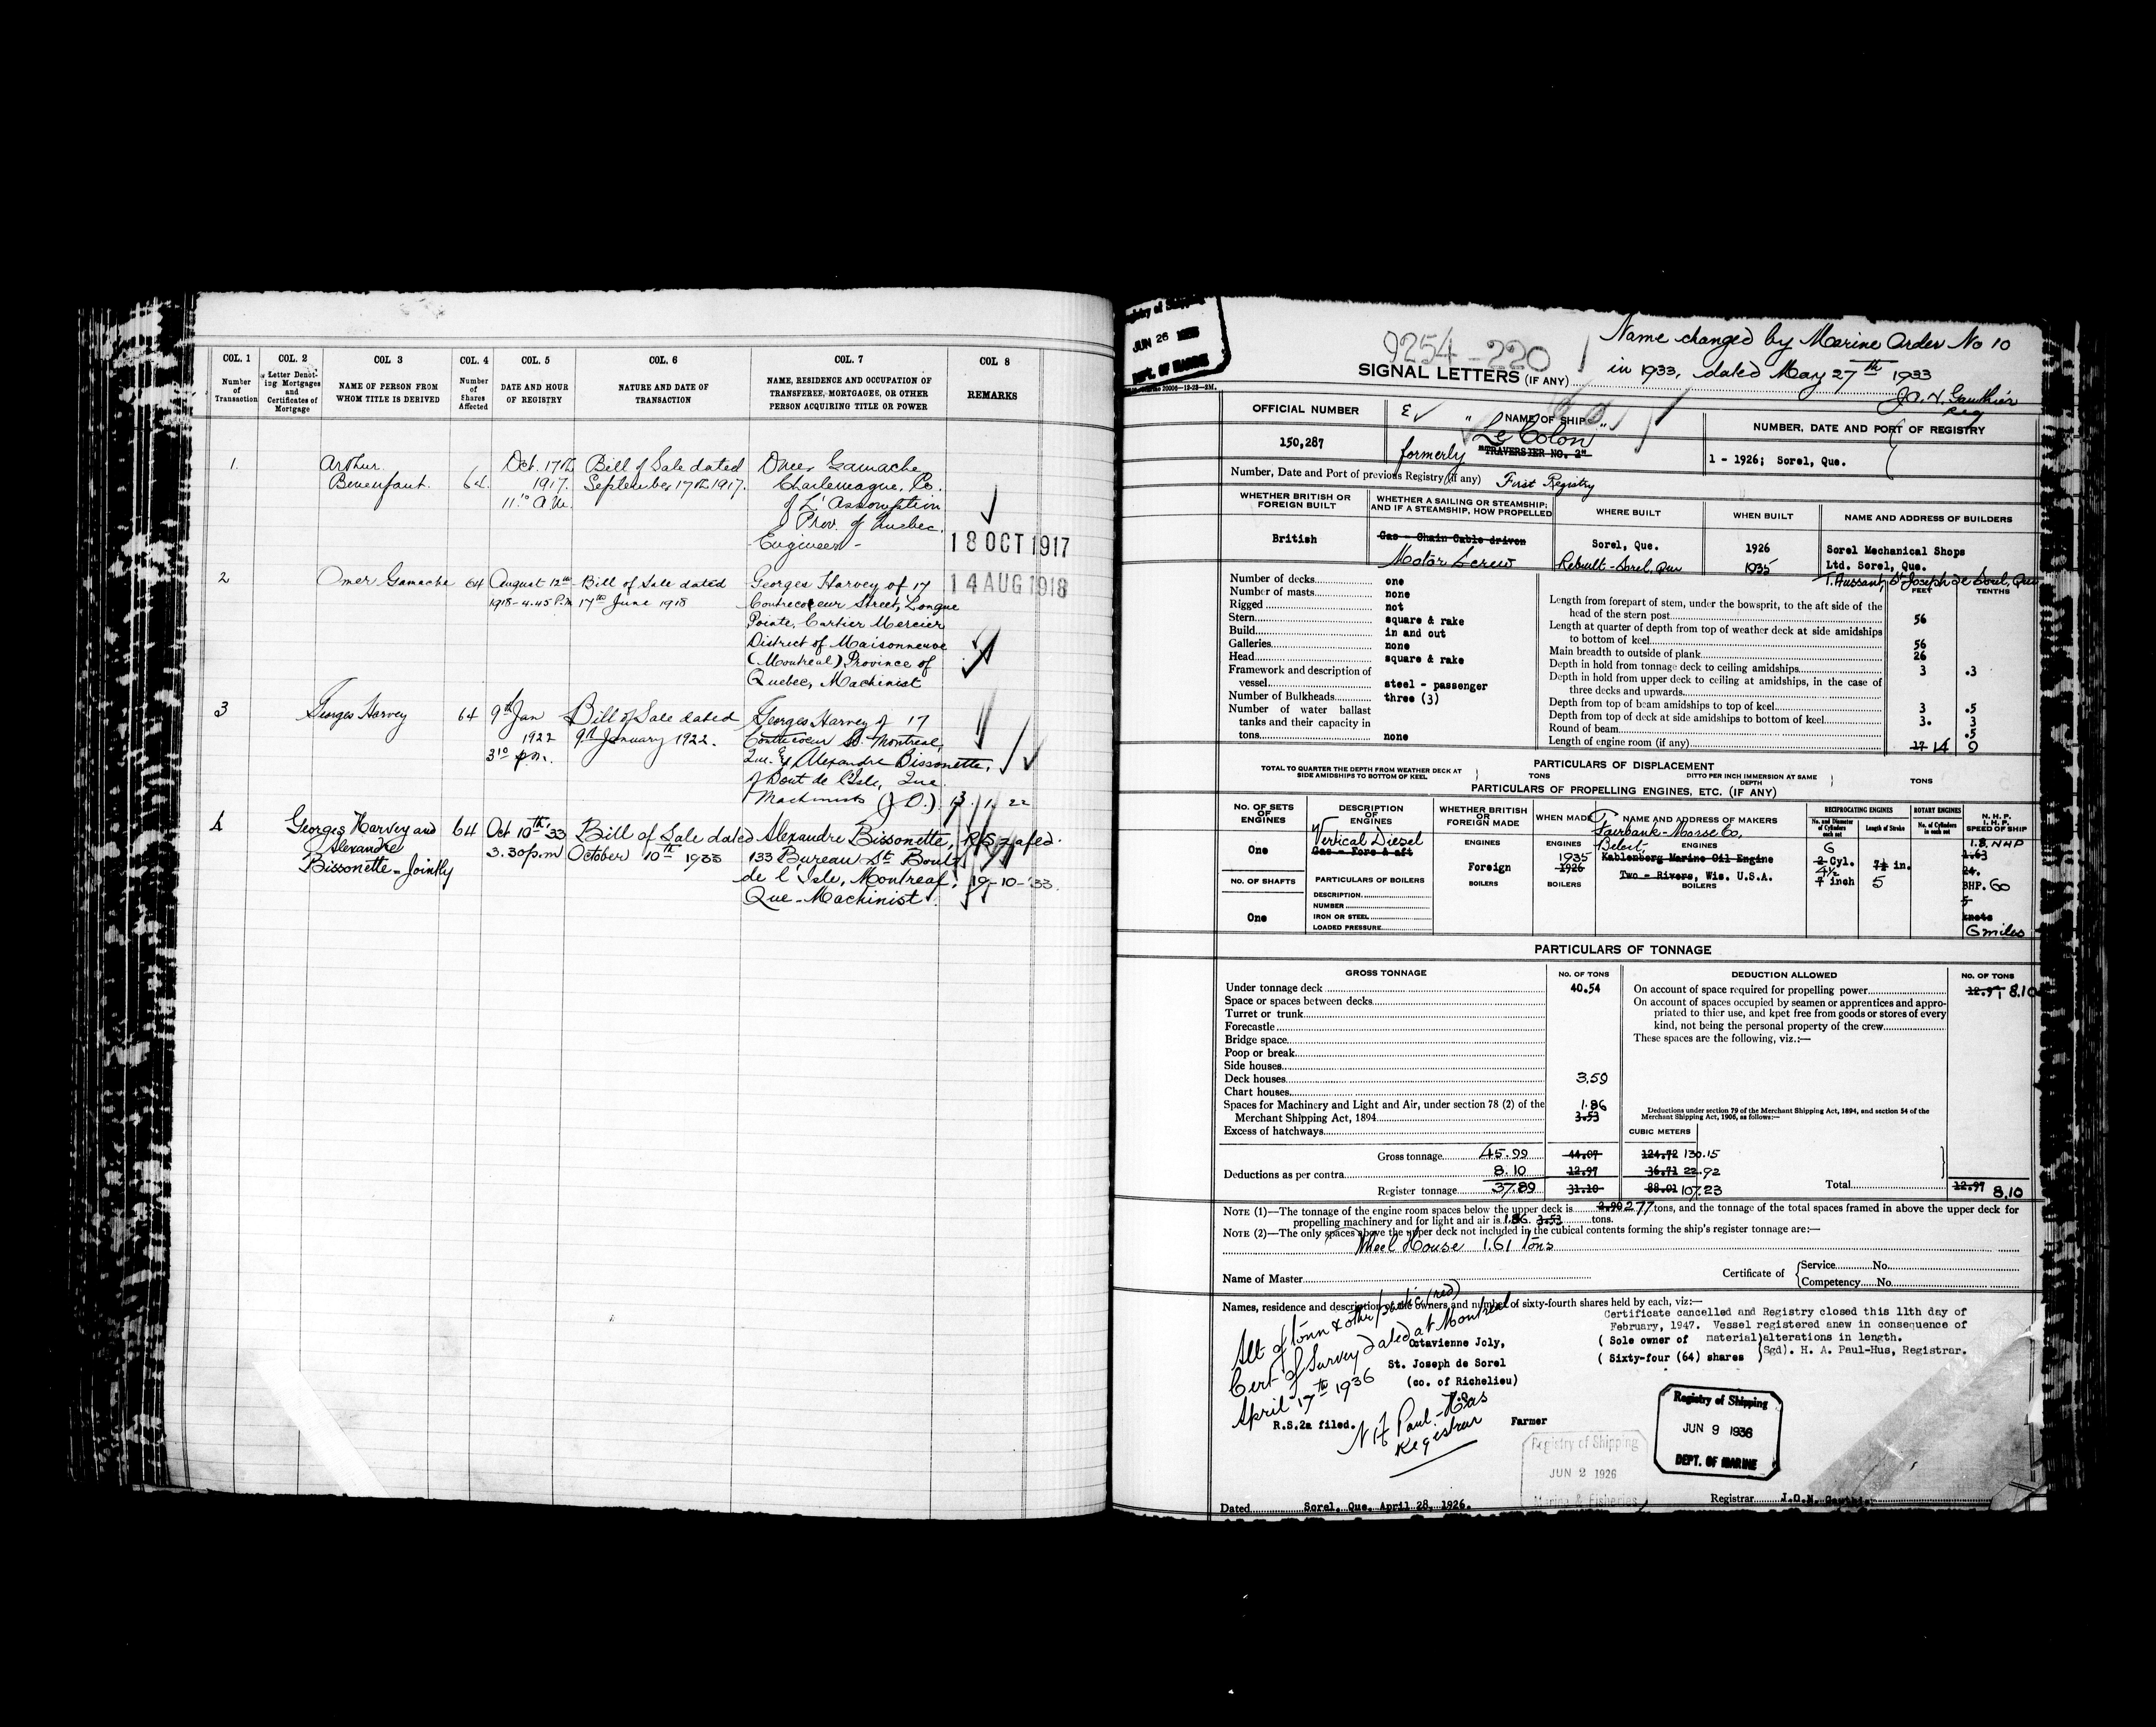 COL. 1
Number of Transaction
COL. 2
Letter Denoting Mortgages and Certificates of Mortgage
COL. 3
NAME OF PERSON FROM WHOM TITLE IS DERIVED
COL. 4
Number of Shares Affected
COL. 5
DATE AND HOUR OF REGISTRY
COL. 6
NATURE AND DATE OF TRANSACTION
COL. 7
NAME, RESIDENCE AND OCCUPATION OF TRANSFEREE, MORTGAGEE, OR OTHER PERSON ACQUIRING TITLE OR POWER
COL 8
REMARKS
1.
Arthur
Bienenfant.
64.
Oct. 17th
1917.
11.10 A.M.
Bill of Sale dated
September 17th 1917.
Omer Gamache
Charlemagne, Co.
of L'Assomption
Prov. of Quebec.
Engineer -
18 OCT 1917
2
Omer Gamache
64
August 12th
1918 - 4.45 P.M.
Bill of Sale dated
17th June 1918
Georges Harvey of 17
Contrecoeur Street, Longue
Pointe, Cartier Mercier
District of Maisonneuve
(Montreal) Province of
Quebec, Machinist
14 AUG 1918
3
Georges Harvey
64
9th Jan
1922
3.10 p.m.
Bill of Sale dated
9th January 1922.
Georges Harvey of 17
Contrecoeur St. Montreal,
Que. & Alexandre Bissonette,
of Bout de l'Isle, Que
Machinists (J.O.)
13. 1. 22
4
Georges Harvey and
Alexandre
Bissonette - Jointly
64
Oct 10th '33
3.30 p.m
Bill of Sale dated
October 10th 1933
Alexandre Bissonette,
133 Bureau St. Bout
de l'Isle, Montreal,
Que - Machinist.
R.S. 2a fed.
19-10-'33.
Registry of Shipping
JUN 26 1933
DEPT. OF MARINE
9254-220
Name changed by Marine Order No 10
SIGNAL LETTERS (IF ANY)
in 1933, dated May 27th 1933
J.O.N. Gauthier
Reg
OFFICIAL NUMBER
150,287
NAME OF SHIP
"Le Colon"
formerly "TRAVERSIER NO. 2"
NUMBER, DATE AND PORT OF REGISTRY
1 - 1926; Sorel, Que.
Number, Date and Port of previous Registry (if any) First Registry
WHETHER BRITISH OR FOREIGN BUILT
WHETHER A SAILING OR STEAMSHIP; AND IF A STEAMSHIP, HOW PROPELLED
WHERE BUILT
WHEN BUILT
NAME AND ADDRESS OF BUILDERS
British
Gas - Chain Cable driven
Motor Screw
Sorel, Que.
Rebuilt - Sorel, Que
1926
1935
Sorel Mechanical Shops
Ltd. Sorel, Que.
T. Aussant, St Joseph de Sorel, Que
FEET
TENTHS
Number of decks one
Number of masts none
Rigged not
Stern square & rake
Build in and out
Galleries none
Head square & rake
Framework and description of
vessel steel - passenger
Number of Bulkheads three (3)
Number of water ballast
tanks and their capacity in
tons none
Length from forepart of stem, under the bowsprit, to the aft side of the
head of the stern post 56
Length at quarter of depth from top of weather deck at side amidships
to bottom of keel 56
Main breadth to outside of plank 26
Depth in hold from tonnage deck to ceiling amidships 3 .3
Depth in hold from upper deck to ceiling at amidships, in the case of
three decks and upwards
Depth from top of beam amidships to top of keel 3 .5
Depth from top of deck at side amidships to bottom of keel 3. 3
Round of beam .5
Length of engine room (if any) 17 14 9
PARTICULARS OF DISPLACEMENT
TOTAL TO QUARTER THE DEPTH FROM WEATHER DECK AT SIDE AMIDSHIPS TO BOTTOM OF KEEL
TONS
DITTO PER INCH IMMERSION AT SAME DEPTH
TONS
PARTICULARS OF PROPELLING ENGINES, ETC. (IF ANY)
NO. OF SETS OF ENGINES
DESCRIPTION OF ENGINES
WHETHER BRITISH OR FOREIGN MADE
WHEN MADE
NAME AND ADDRESS OF MAKERS
RECIPROCATING ENGINES
No. and Diameter of Cylinders each set
Length of Stroke
ROTARY ENGINES
No. of Cylinders in each set
N. H. P.
I. H. P.
SPEED OF SHIP
One
Vertical Diesel
Gas - Fore & aft
ENGINES
Foreign
ENGINES
1935
1926
Fairbank-Morse Co,
Beloit,
ENGINES
Kahlenberg Marine Oil Engine
Two - Rivers, Wis. U.S.A.
6
2 Cyl.
4½
7 inch
7½ in.
5
1.8. NHP
1.63
24.
BHP. 60
5
knots
6 miles
NO. OF SHAFTS
One
PARTICULARS OF BOILERS
DESCRIPTION
NUMBER
IRON OR STEEL
LOADED PRESSURE
BOILERS
BOILERS
BOILERS
PARTICULARS OF TONNAGE
GROSS TONNAGE
NO. OF TONS
DEDUCTION ALLOWED
NO. OF TONS
Under tonnage deck 40.54
Space or spaces between decks
Turret or trunk
Forecastle
Bridge space
Poop or break
Side houses
Deck houses 3.59
Chart houses
Spaces for Machinery and Light and Air, under section 78 (2) of the 1.86
Merchant Shipping Act, 1894 3.53
Excess of hatchways
On account of space required for propelling power 12.97 8.10
On account of spaces occupied by seamen or apprentices and appro-
priated to thier use, and kpet free from goods or stores of every
kind, not being the personal property of the crew
These spaces are the following, viz.:—
Deductions under section 79 of the Merchant Shipping Act, 1894, and section 54 of the
Merchant Shipping Act, 1906, as follows:—
CUBIC METERS
Gross tonnage 45.99 44.07 124.72 130.15
Deductions as per contra 8.10 12.97 36.71 22.92
Register tonnage 37.89 31.10 88.01 107.23
Total 12.97 8.10
NOTE (1)—The tonnage of the engine room spaces below the upper deck is 2.90 277 tons, and the tonnage of the total spaces framed in above the upper deck for
propelling machinery and for light and air is 1.86 3.53 tons.
NOTE (2)—The only spaces above the upper deck not included in the cubical contents forming the ship's register tonnage are:—
Wheel House 1.61 Tons
Name of Master
Certificate of
Service No.
Competency No.
Names, residence and description of the owners and number of sixty-fourth shares held by each, viz:—
Alt of Tonn & other partic (red)
Cert of Survey dated at Montreal
April 17th 1936
N H Paul-Hus
Registrar
Octavienne Joly,
St. Joseph de Sorel
(co. of Richelieu)
R.S.2a filed.
Farmer
Certificate cancelled and Registry closed this 11th day of
February, 1947. Vessel registered anew in consequence of
( Sole owner of material) alterations in length.
( Sixty-four (64) shares )Sgd). H. A. Paul-Hus, Registrar.
Registry of Shipping
JUN 9 1936
DEPT. OF MARINE
Registry of Shipping
JUN 2 1926
Marine & Fisheries
Dated Sorel, Que. April 28, 1926.
Registrar J.O.N. Gauthier